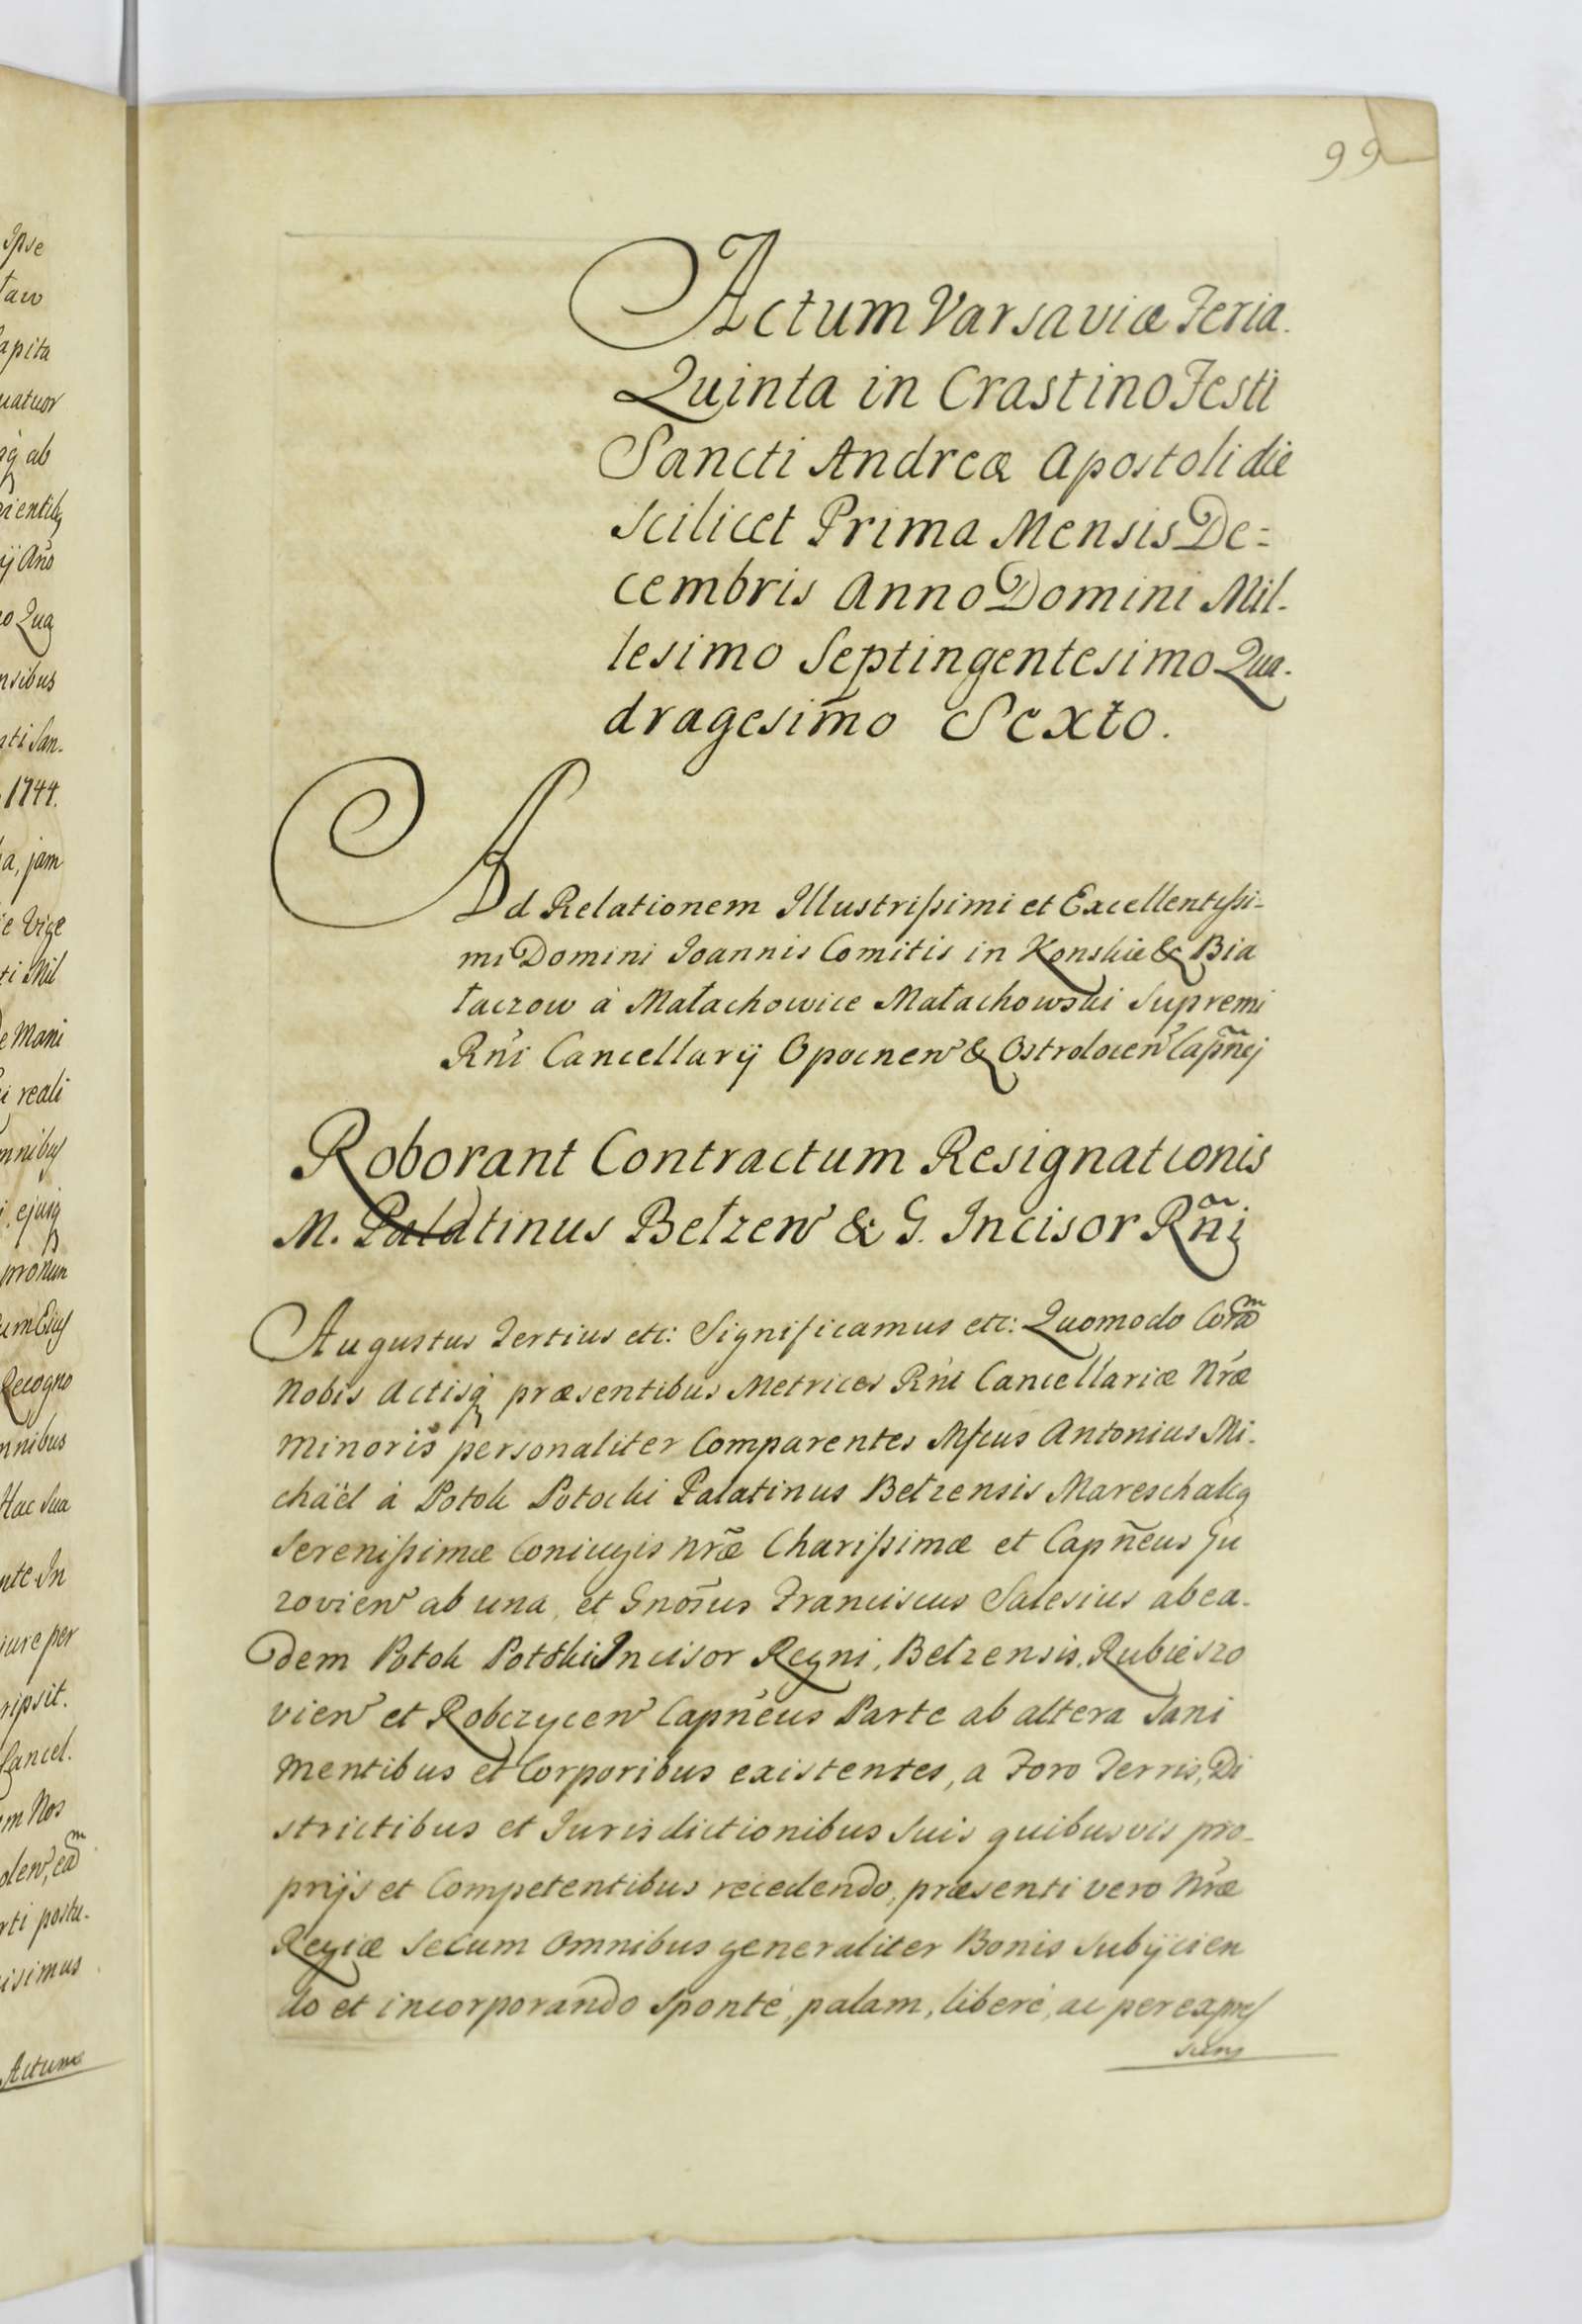 Ipse
apita
uatuor
ab
nsibus
ati San-
1744.
a, jam
e Vige
ti Mil
Mani
i reali
mnibus
ejusq
um Eius
Recogno
mnibus
Hac sua
nte In
iure per
ripsit.
Cancel.
m Nos
rti postu-
isimus
Actum
99
Actum Varsaviæ Feria
Quinta in Crastino Festi
Sancti Andreæ Apostoli die
scilicet Prima Mensis De=
cembris Anno Domini Mil-
lesimo Septingentesimo Qua-
dragesimo Sexto.
Ad Relationem Illustrissimi et Excellentissi-
mi Domini Joannis Comitis in Konskie & Bia
łaczow à Małachowice Małachowski Supremi
Rñi Cancellarij Opocnen & Ostrołocen Capñej
Roborant Contractum Resignationis
M. Palatinus Bełzen & G. Incisor Rñi
Augustus Tertius etc: Significamus etc: Quomodo Coram
Nobis Actisq præsentibus Metrices Rñi Cancellariæ Nræ
Minoris personaliter Comparentes Mfcus Antonius Mi-
chaël à Potok Potocki Palatinus Bełzensis Mareschalcq
Serenissimæ Coniugis Nræ Charissimæ et Capñeus Gu
zovien ab una, et Gnosus Franciscus Salesius ab ea-
dem Potok Potocki Incisor Regni, Bełzensis, Rubieszo
vien et Robczycen Capñeus Parte ab altera Sani
mentibus et Corporibus existentes, a Foro Terris, Di
strictibus et Jurisdictionibus suis quibusvis pro-
prijs et Competentibus recedendo, præsenti vero Nræ
Regiæ secum Omnibus generaliter Bonis subijcien
do et incorporando sponte, palam, libere, ac per expres